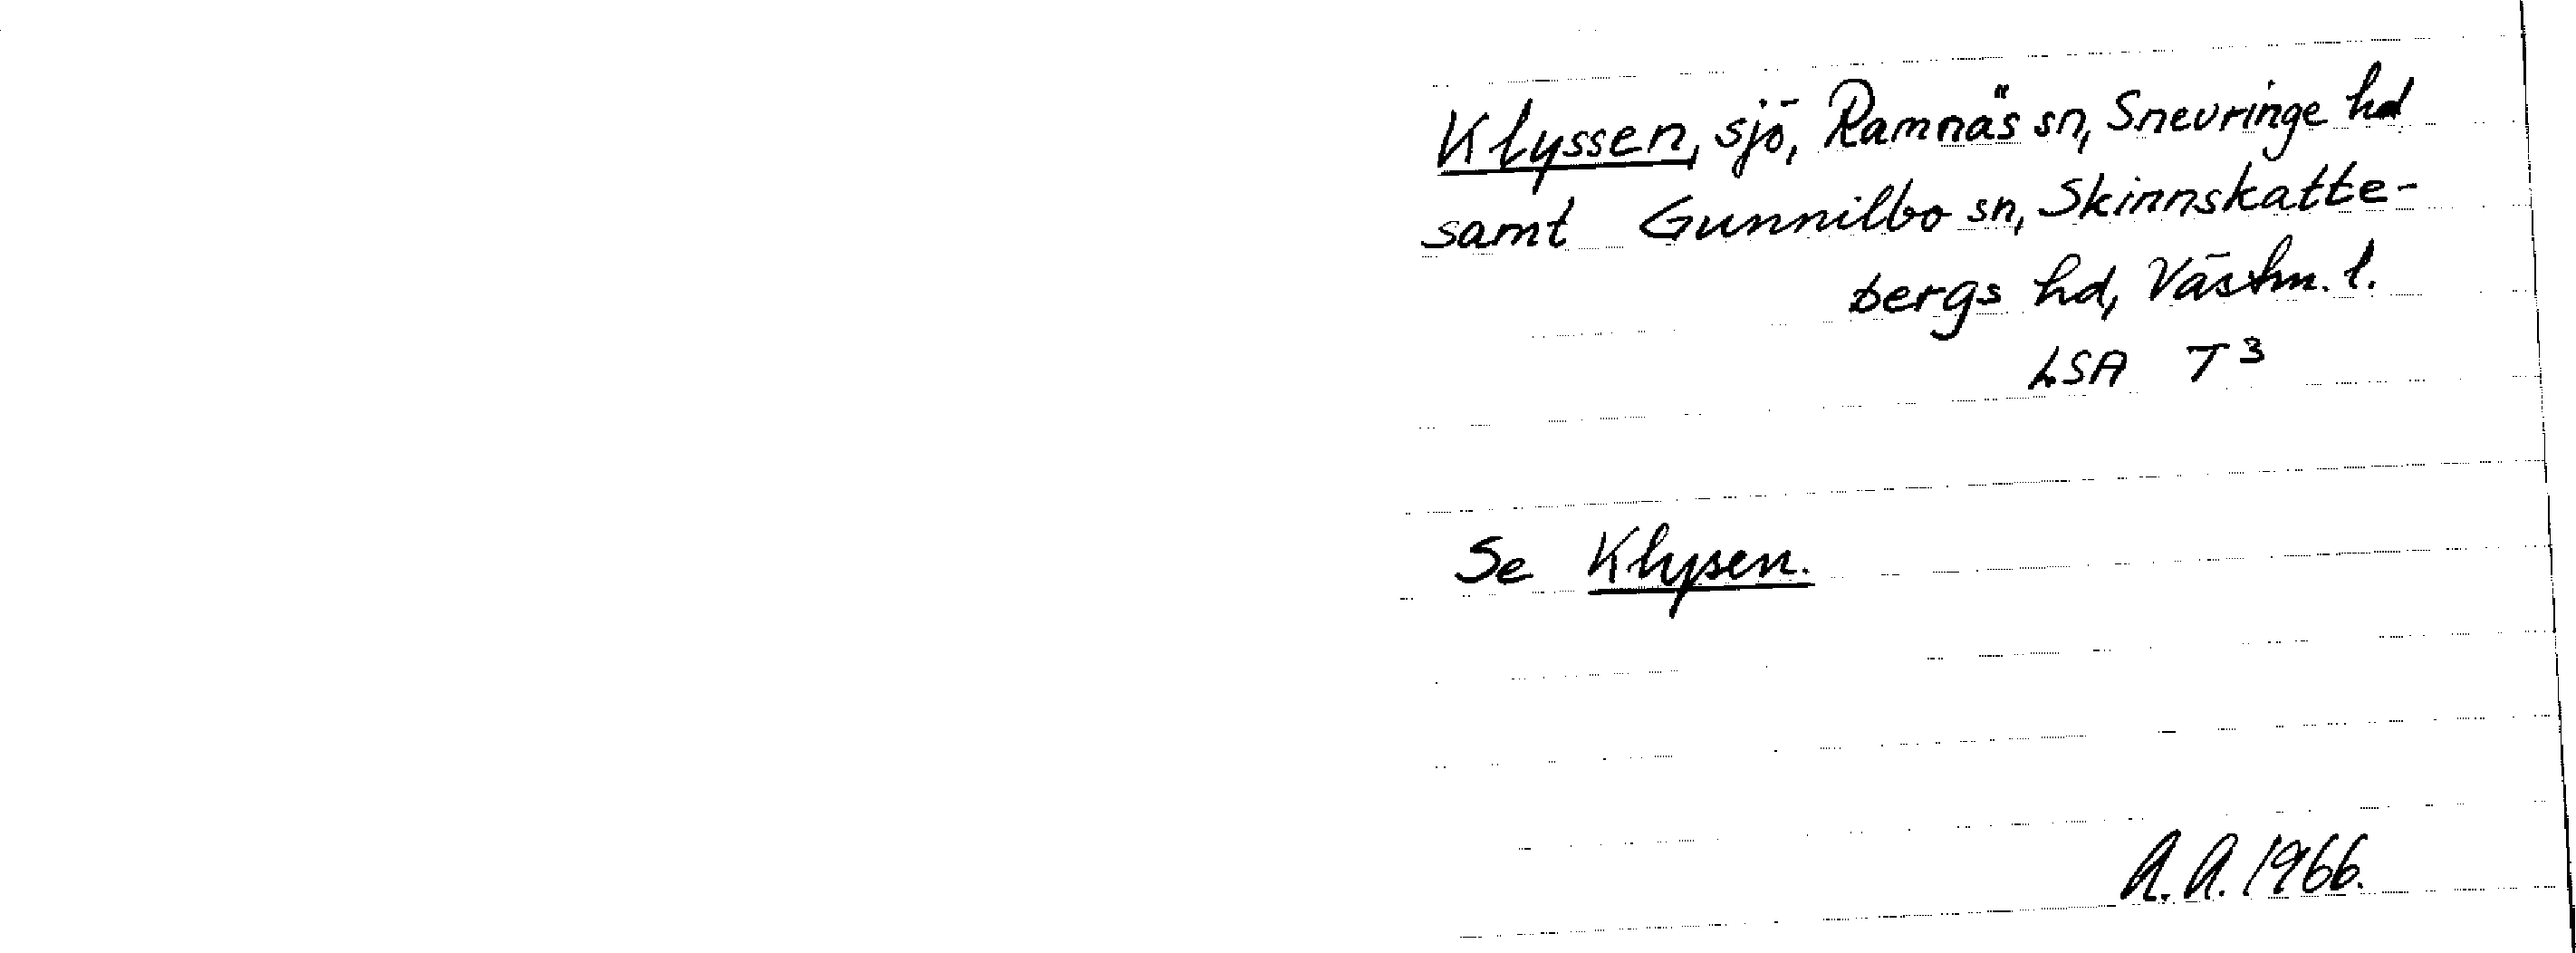 Klyssen, sjö, Ramnäs sn, Snevringe hd
samt Gunnilbo sn, Skinnskatte-
bergs hd, Västm. l.
LSA T³
Se Klysen.
A. A. 1966.